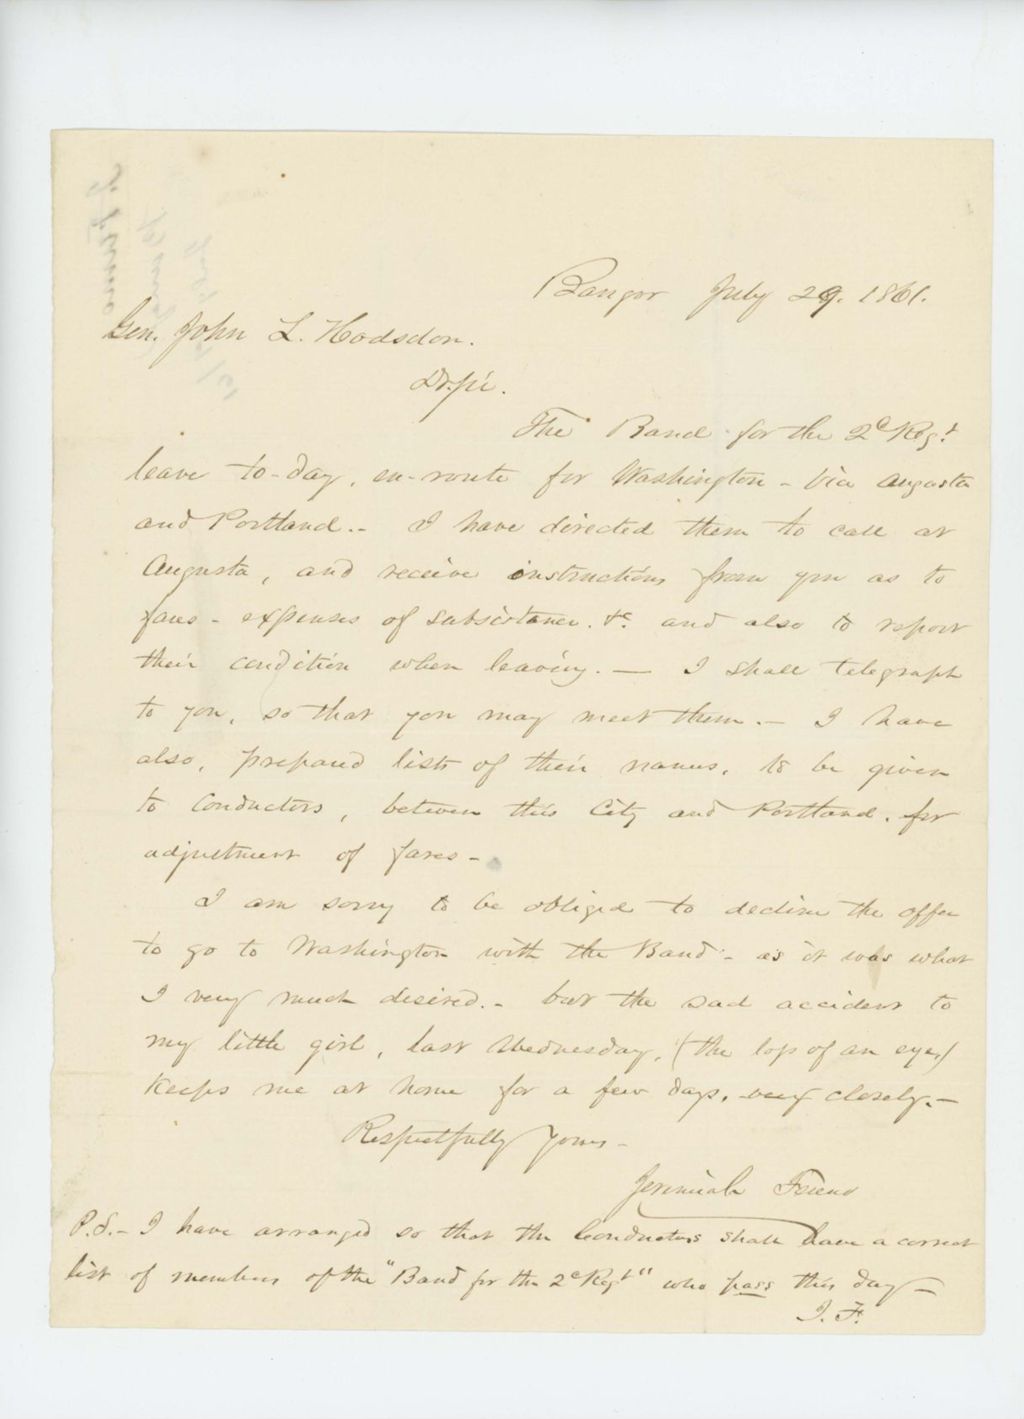 Bangor July 29. 1861.
Gen. John L. Hodsdon.
Dr. Sir.
The Band for the 2d Regt
leave to-day, en-route for Washington - via Augusta
and Portland.- I have directed them to call at
Augusta, and receive instructions from you as to
fares - expenses of subsistance. &c. and also to report
their condition when leaving. — I shall telegraph
to you, so that you may meet them. — I have
also, prepared lists of their names, to be given
to Conductors, between this City and Portland. for
adjustment of fares -
I am sorry to be obliged to decline the offer
to go to Washington with the Band - as it was what
I very much desired. - but the sad accident to
my little girl, last Wednesday, (the loss of an eye,)
keeps me at home for a few days, very closely. —
Respectfully Yours -
Jeremiah Friend
P.S. - I have arranged so that the Conductors shall have a correct
list of members of the "Band for the 2d Regt" who pass this day —
J. F.